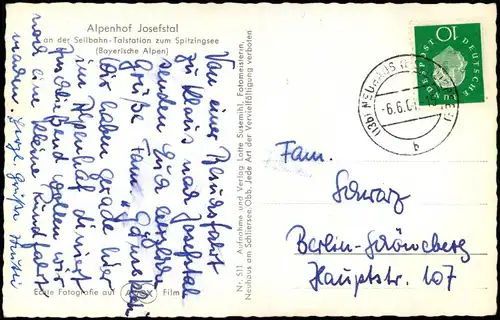 Alpenhof Josefstal
an der Seilbahn-Talstation zum Spitzingsee
(Bayerische Alpen)
Von einer Rundfahrt
zu Klaus nach Josefstal
senden Euch herzliche
Grüße Fam.
Wir haben gerade hier
im Alpenhof diniert
und
noch eine kleine Rundfahrt
machen. Herzl. Grüße
Echte Fotografie auf AGFA Film
Nr. 511 Aufnahme und Verlag Lotte Susemihl, Fotomeisterin,
Neuhaus am Schliersee/Obb. Jede Art der Vervielfältigung verboten
DEUTSCHE
BUNDESPOST
10
(13b) NEUHAUS
-6.6.61
b
Fam.
Schwarz
Berlin-Schöneberg
Hauptstr. 107